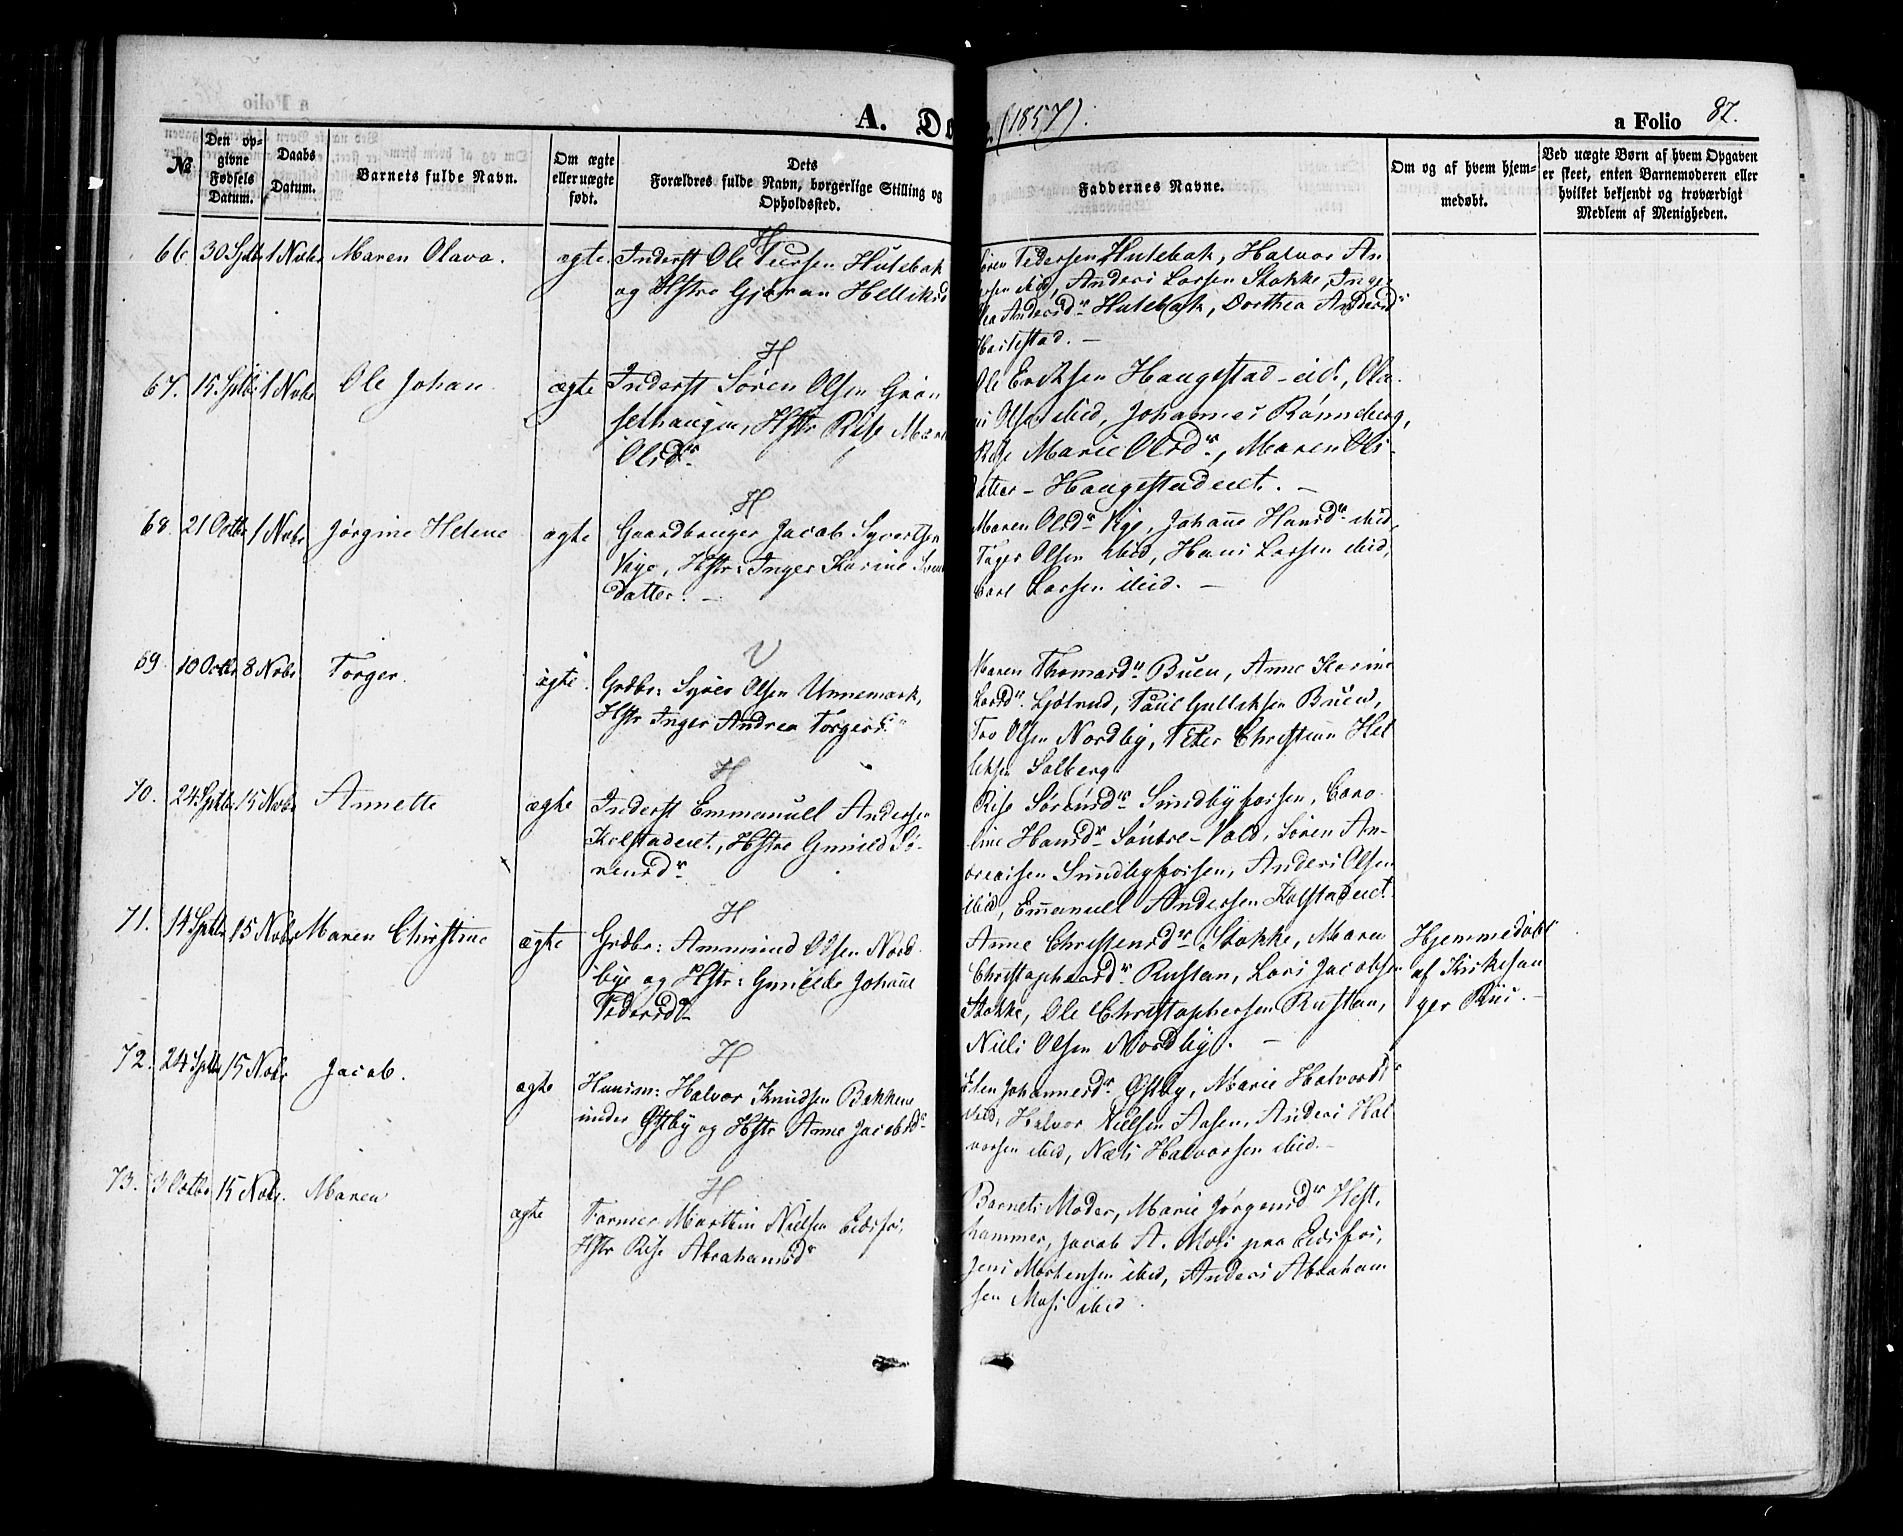 A. Dø (1857). a Folio 87.
№ Den opgivne Fødsels Datum. Daabs Datum. Barnets fulde Navn. Om ægte eller uægte født. Dets Forældres fulde Navn, borgerlige Stilling og Opholdssted. Faddernes Navne. Om og af hvem hjemmedøbt. Ved uægte Børn af hvem Opgaven er skeet, enten Barnemoderen eller hvilket bekjendt og troværdigt Medlem af Menigheden.
H
66. 30 Septbr 1 Novbr Maren Olava. ægte. Inderst Ole Hulebak
og Hstro Gjøran Helliksd
Pedersen Hulebak, Halvor An-
ibid, Anders Larsen Stokke, Inge-
Andersdr Hulebak, Dorthea Andersdr
H
67. 15. Septbr 1 Novbr Ole Johan ægte Inderst Søren Olsen Grøn
sethaugen, Hstr Rise Mar
Olsdr
Ole Eriksen Haugestad-eid., Ola-
Olsen ibid, Johannes Rønneberg,
Rise Marie Olsdr, Maren Ols-
datter - Haugestadeiet. -
H
68. 21 Octbr 1 Novbr Jørgine Helene ægte Gaardbruger Jacob Syvertsen
Vige, Hstr: Inger Karine
datter. -
Maren Olsdr Vige, Johanne Hansdr ibid,
Olsen ibid, Hans Larsen ibid,
Carl Larsen ibid. -
V
69. 10 Octbr 8 Novbr Torger. ægte. Grdbr: Syver Olsen Unnemark,
Hstr Inger Andrea Torgersdr
Maren Thomasdr Buen, Anne Karine
Larsdr, Paul Gulliksen Buen,
Olsen Nordby, Peter Christian Hel-
liksen Solberg
H
70. 24. Septbr 15 Novbr Annette ægte Inderst Emmanuell Andersen
Kolstadeiet, Hstro Gunild Sø-
rensdr
Rise Sørensdr Sundbyfossen, Caro-
line Hansdr Søndre-Vold, Søren An-
dreasen Sundbyfossen, Anders Olsen
ibid, Emanuell Andersen Kolstadeiet.
H
71. 14 Septbr 15 Novbr Maren Christine ægte Grdbr: Ammund Olsen Nord-
bye og Hstr: Gunilde Johanne
Pedersdr
Anne Christensdr Stokke, Maren
Christophersdr Rustan, Lars Jacobsen
Stokke, Ole Christophersen Rustan,
Niels Olsen Nordby. -
Hjemmedøbt
af Kirkesan-
ger Riis. -
H
72. 24 Septbr 15 Novbr Jacob. ægte Huusm: Halvor Knudsen Bakken
under Østby og Hstr Anne Jacobsdr
Johannesdr Østby, Marie Halvorsdr
ibid, Halvor Nielsen Aasen, Anders Hal-
vorsen ibid, Niels Halvorsen ibid. -
H
73. 3 Octbr 15 Novbr. Maren ægte Former Marthin Nielsen Eidsfos,
Hstr Rise Abrahamsdr
Barnets Moder, Marie Jørgensdr Hest-
hammer, Jacob A. Moss paa Eidsfos,
Jens Mortensen ibid, Anders Abraham-
sen Moss ibid.